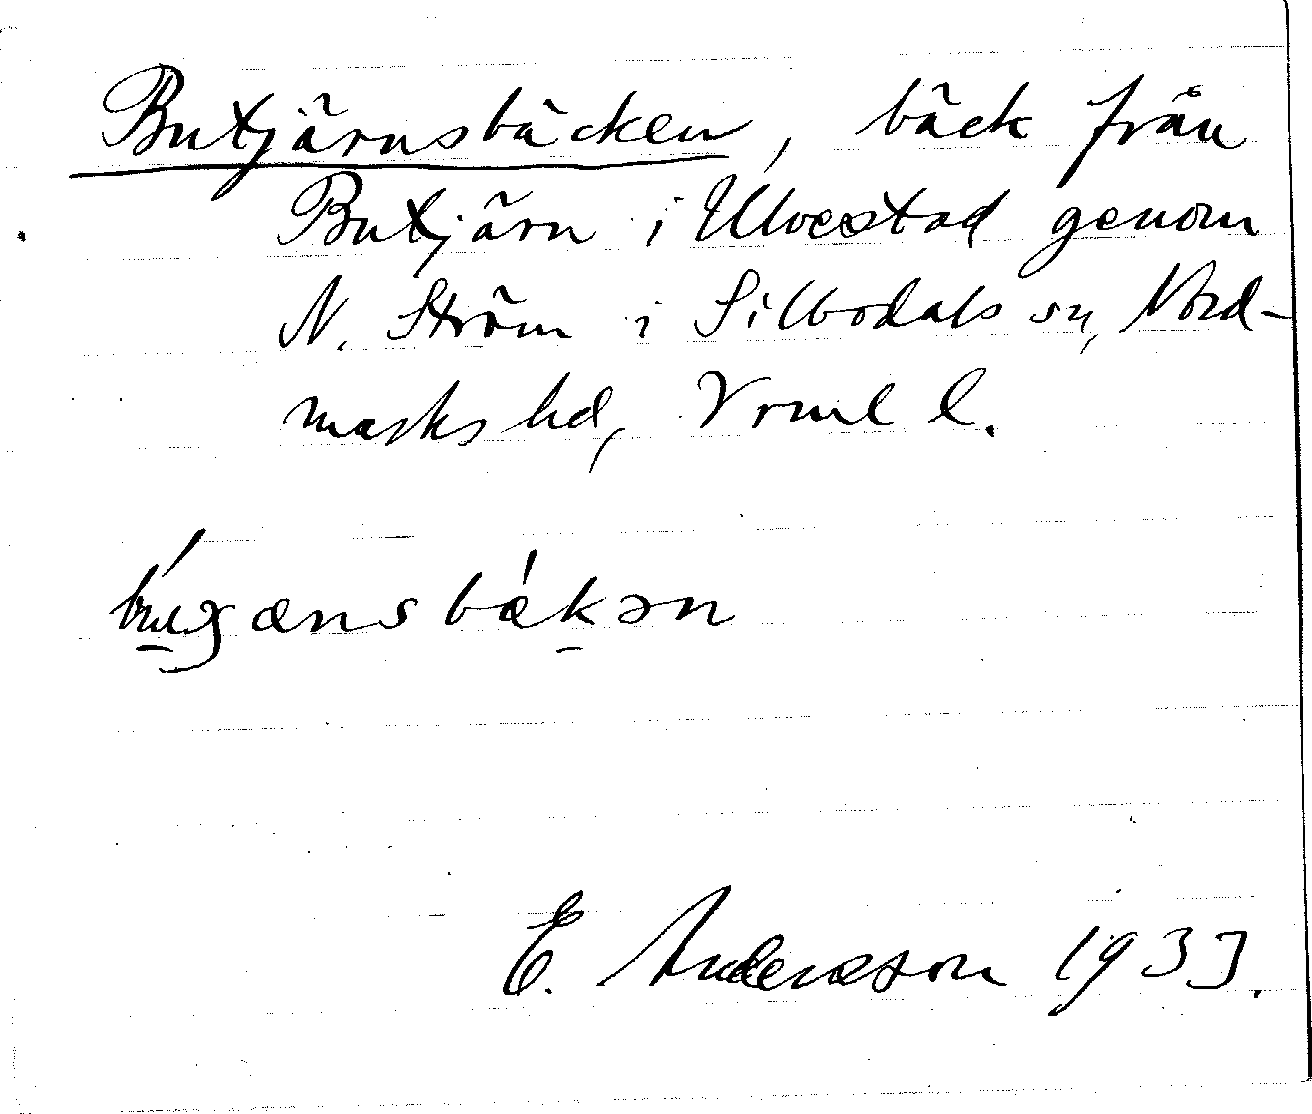 Butjärnsbäcken, bäck från
Butjärn i Ulvestad genom
N. Ström i Silbodals sn, Nord-
marks hd, Vrml l.
E. Andersson 1933.